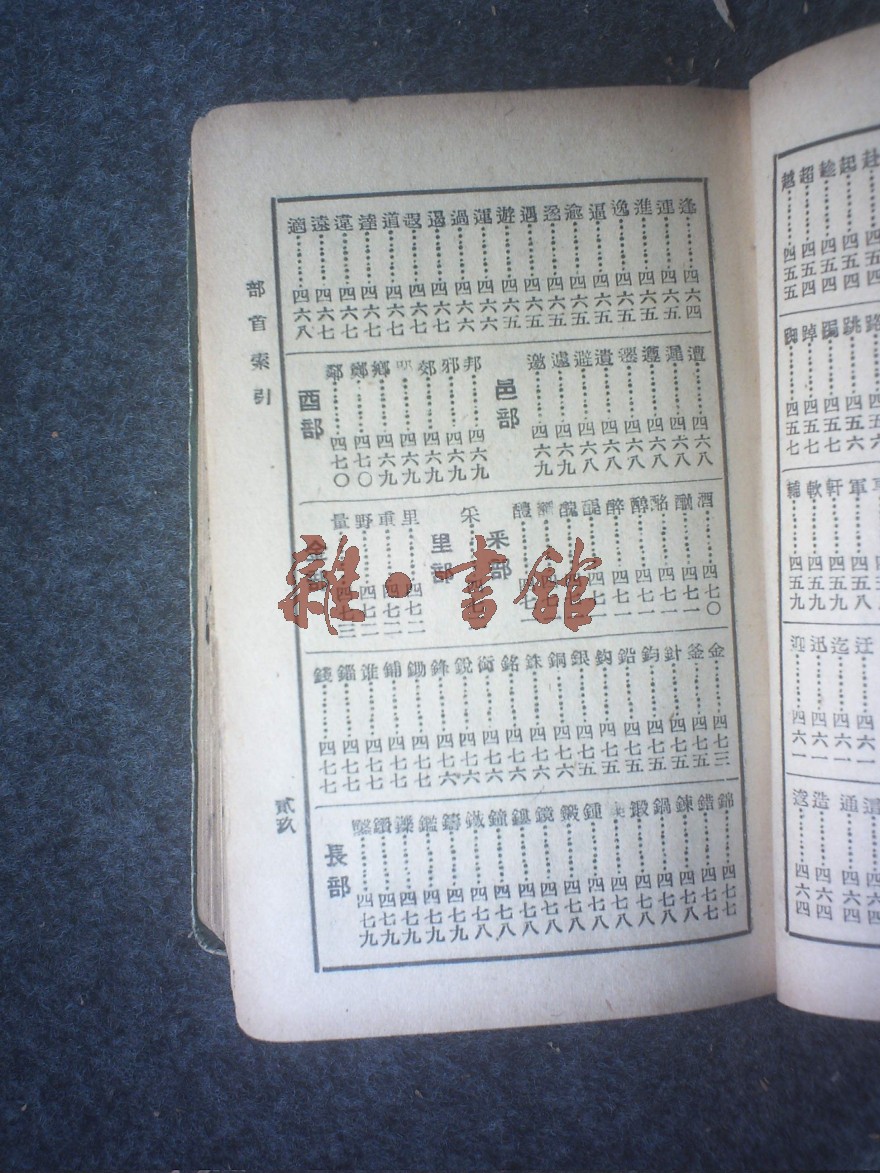 部首索引
逢四六四
運四六五
進四六五
逸四六五
逼四六五
逾四六五
遇四六五
遊四六六
運四六六
過四六六
遏四六七
道四六七
達四六七
違四六七
遠四六七
適四六八
遭四六八
遲四六八
遷四六八
選四六八
遺四六八
避四六八
遽四六九
邀四六九
邑部
邦四六九
邪四六九
郊四六九
鄉四六九
鄭四七〇
鄰四七〇
酉部
酒四七〇
酣四七一
酩四七一
醇四七一
醉四七一
醒四七一
醜
醴
釆部
采
里部
里四七二
重四七二
野四七二
量四七三
金部
金四七三
釜四七五
針四七五
鈞四七五
鉛四七五
鈎四七五
銀四七五
銅四七六
銖四七六
銘四七六
銜四七六
銳四七六
鋒四七六
鋤四七七
鋪四七七
錐四七七
錙四七七
錢四七七
錦四七七
錯四七七
鍊四七八
鍋四七八
鍛四七八
鍾四七八
鏡四七八
鐘四七八
鐵四七九
鑄四七九
鑑四七九
鑠四七九
鑽四七九
鑿四七九
長部
貳玖
越四五五
超四五四
起四五四
赴
路
跳四五六
踢四五六
踔四五七
軍四五八
軒四五九
軟四五九
輔四五九
迂
迄四六一
迅四六一
迎四六一
通四六四
造四六四
逡四六四
雜·書館